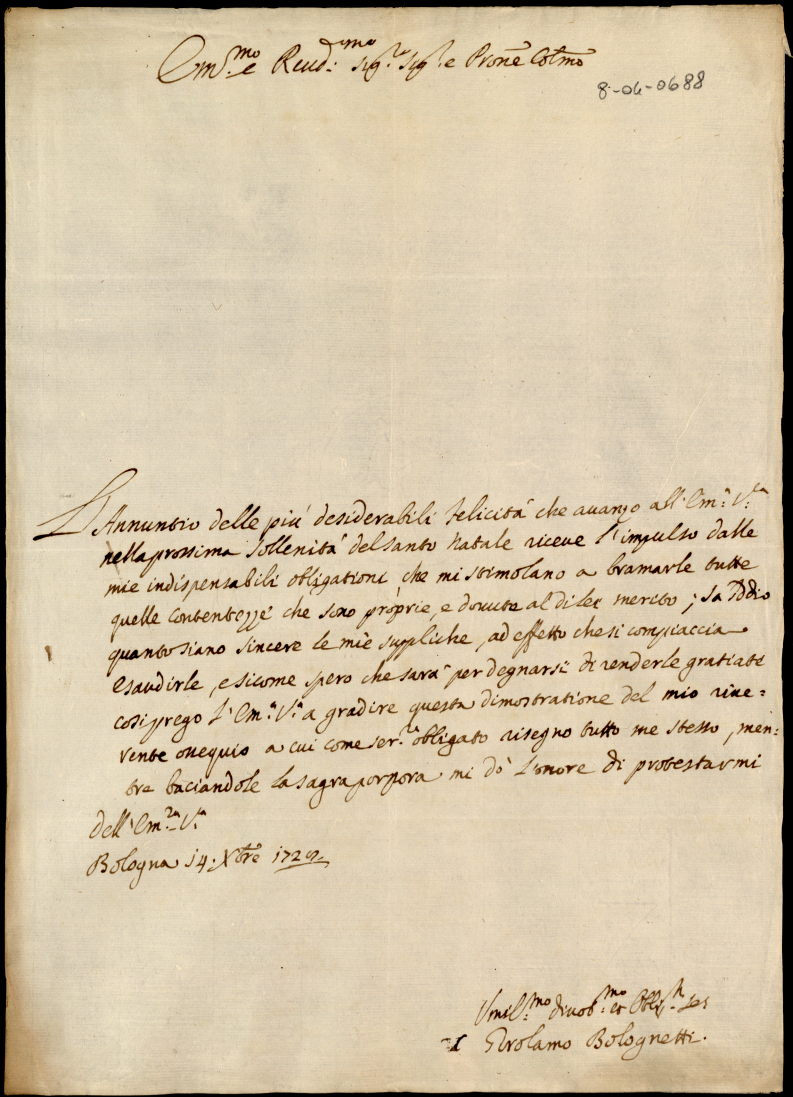 Em.mo e Reud.mo sig.re sig.r e Prone Colmo
8-04-0688
L'Annuntio delle piu' desiderabili felicità che auanzo all'Em.a V.ra
nella prossima sollenità del santo Natale riceue l'impulso dalle
mie indispensabili obligationi che mi stimolano a bramarle tutte
quelle contentezze che sono proprie, e douute al di lei merito; sa Iddio
quanto siano sincere le mie suppliche, ad effetto che si compiaccia
esaudirle, e sicome spero che sarà per degnarsi di renderle gratiate
cosi prego l'Em.a V.ra a gradire questa dimostratione del mio riue=
rente ossequio a cui come ser.re obligato risegno tutto me stesso, men=
tre baciandole la sagra porpora mi dò l'onore di protestarmi
dell'Em.za V.ra
Bologna 14: Xbre 172
Umil.mo diuot.mo et Obl. ser
Girolamo Bolognetti.